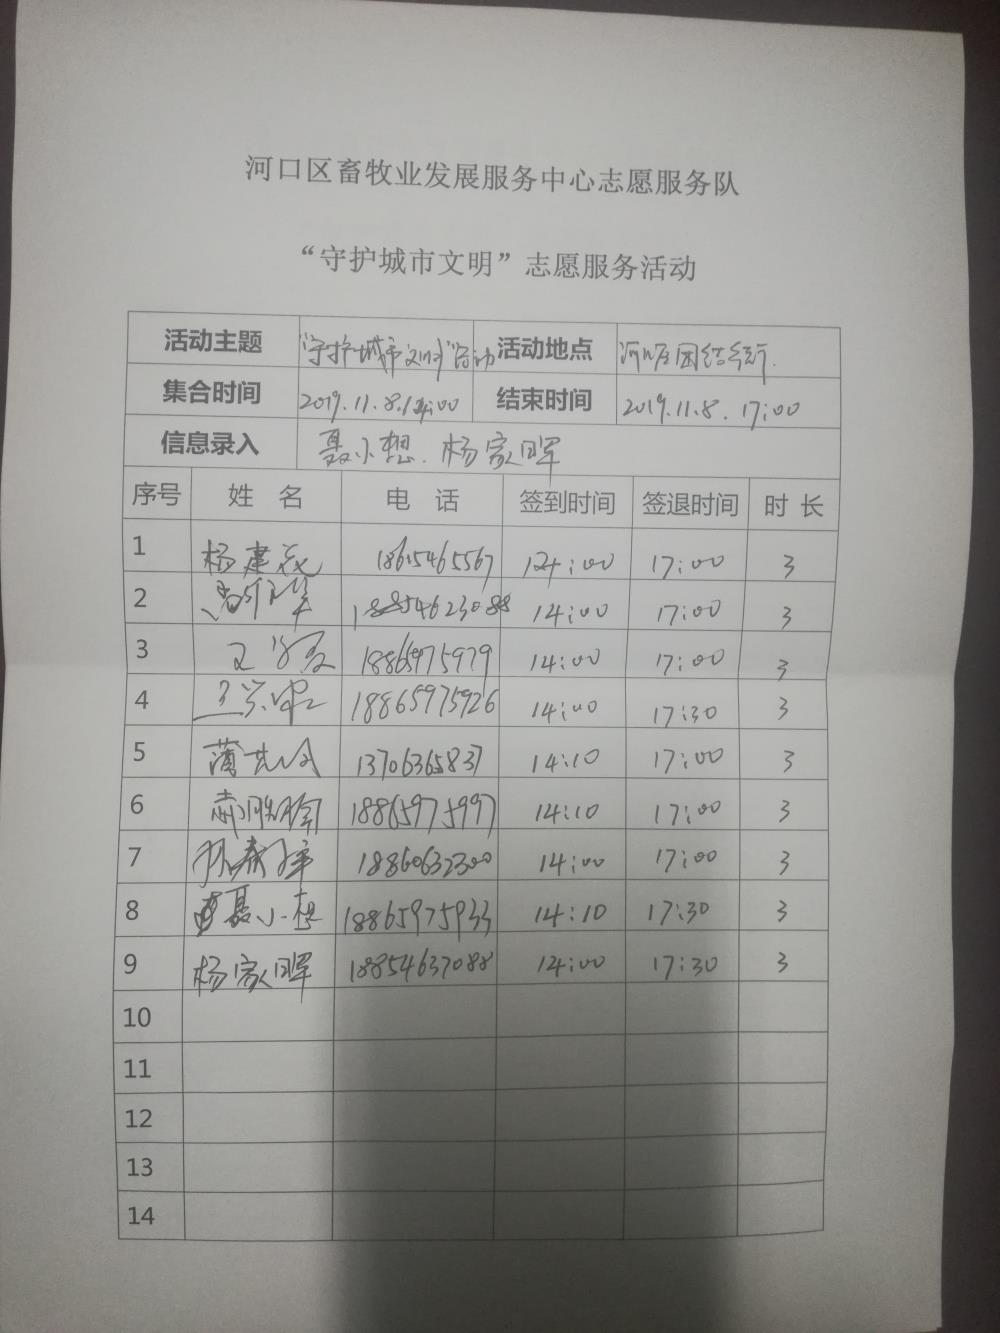 河口区畜牧业发展服务中心志愿服务队
“守护城市文明”志愿服务活动
活动主题 “守护城市文明”活动 活动地点 河口区团结街
集合时间 2019.11.8.14:00 结束时间 2019.11.8.17:00
信息录入 聂小想.杨家晖
序号 姓名 电话 签到时间 签退时间 时长
1 杨建 18615465567 14:00 17:00 3
2 14:00 17:00 3
3 18865975979 14:00 17:00 3
4 18865975926 14:00 17:30 3
5 蒲 13706365837 14:10 17:00 3
6 18865975997 14:10 17:00 3
7 18860632300 14:00 17:00 3
8 聂小想 18865975933 14:10 17:30 3
9 杨家晖 18854637088 14:00 17:30 3
10
11
12
13
14